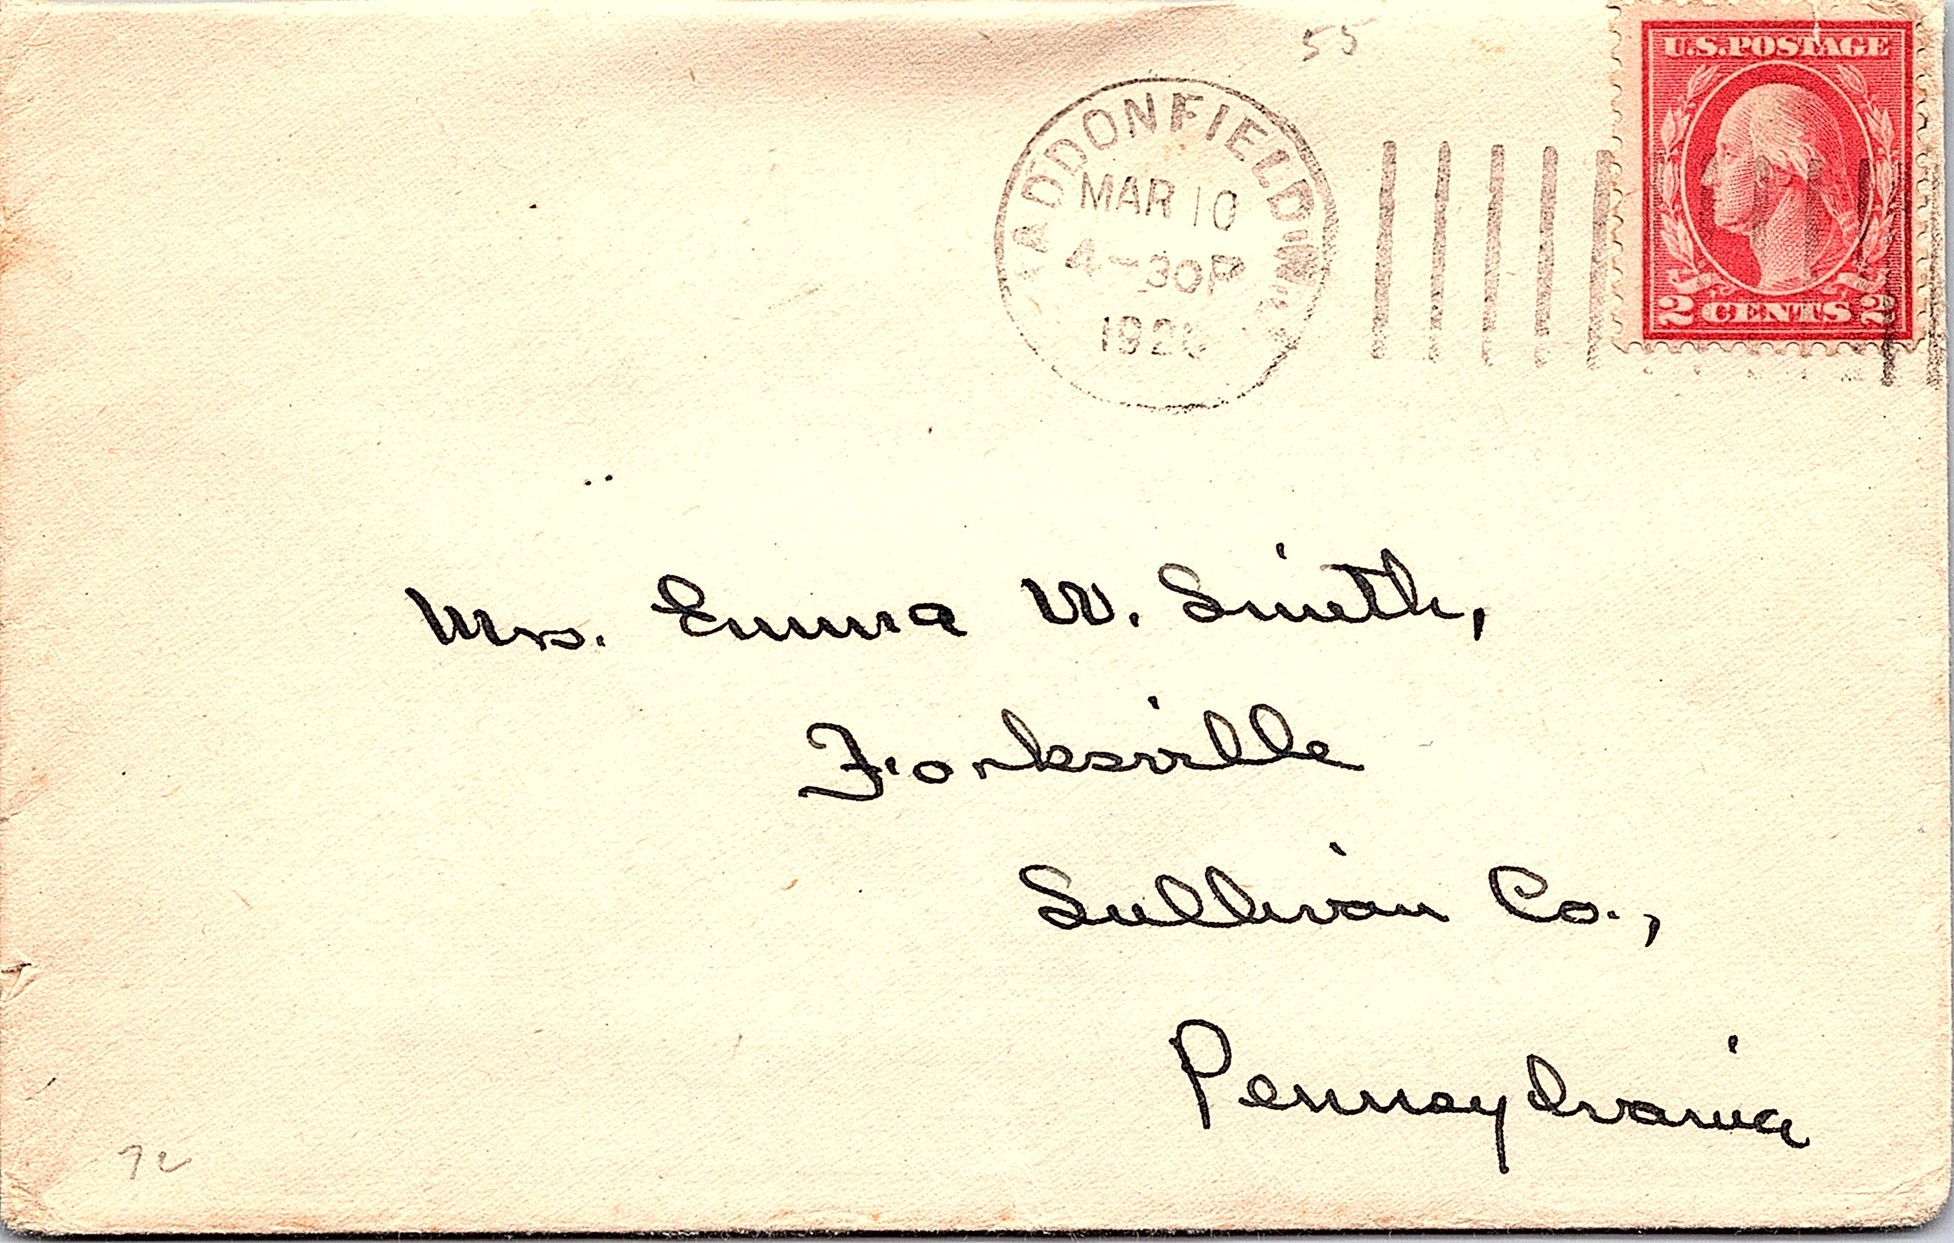 55
U.S. POSTAGE
2 CENTS 2
ADDONFIELD
MAR 10
4-30P
Mrs. Emma W. Smith,
Forksville
Sullivan Co.,
Pennsylvania
72